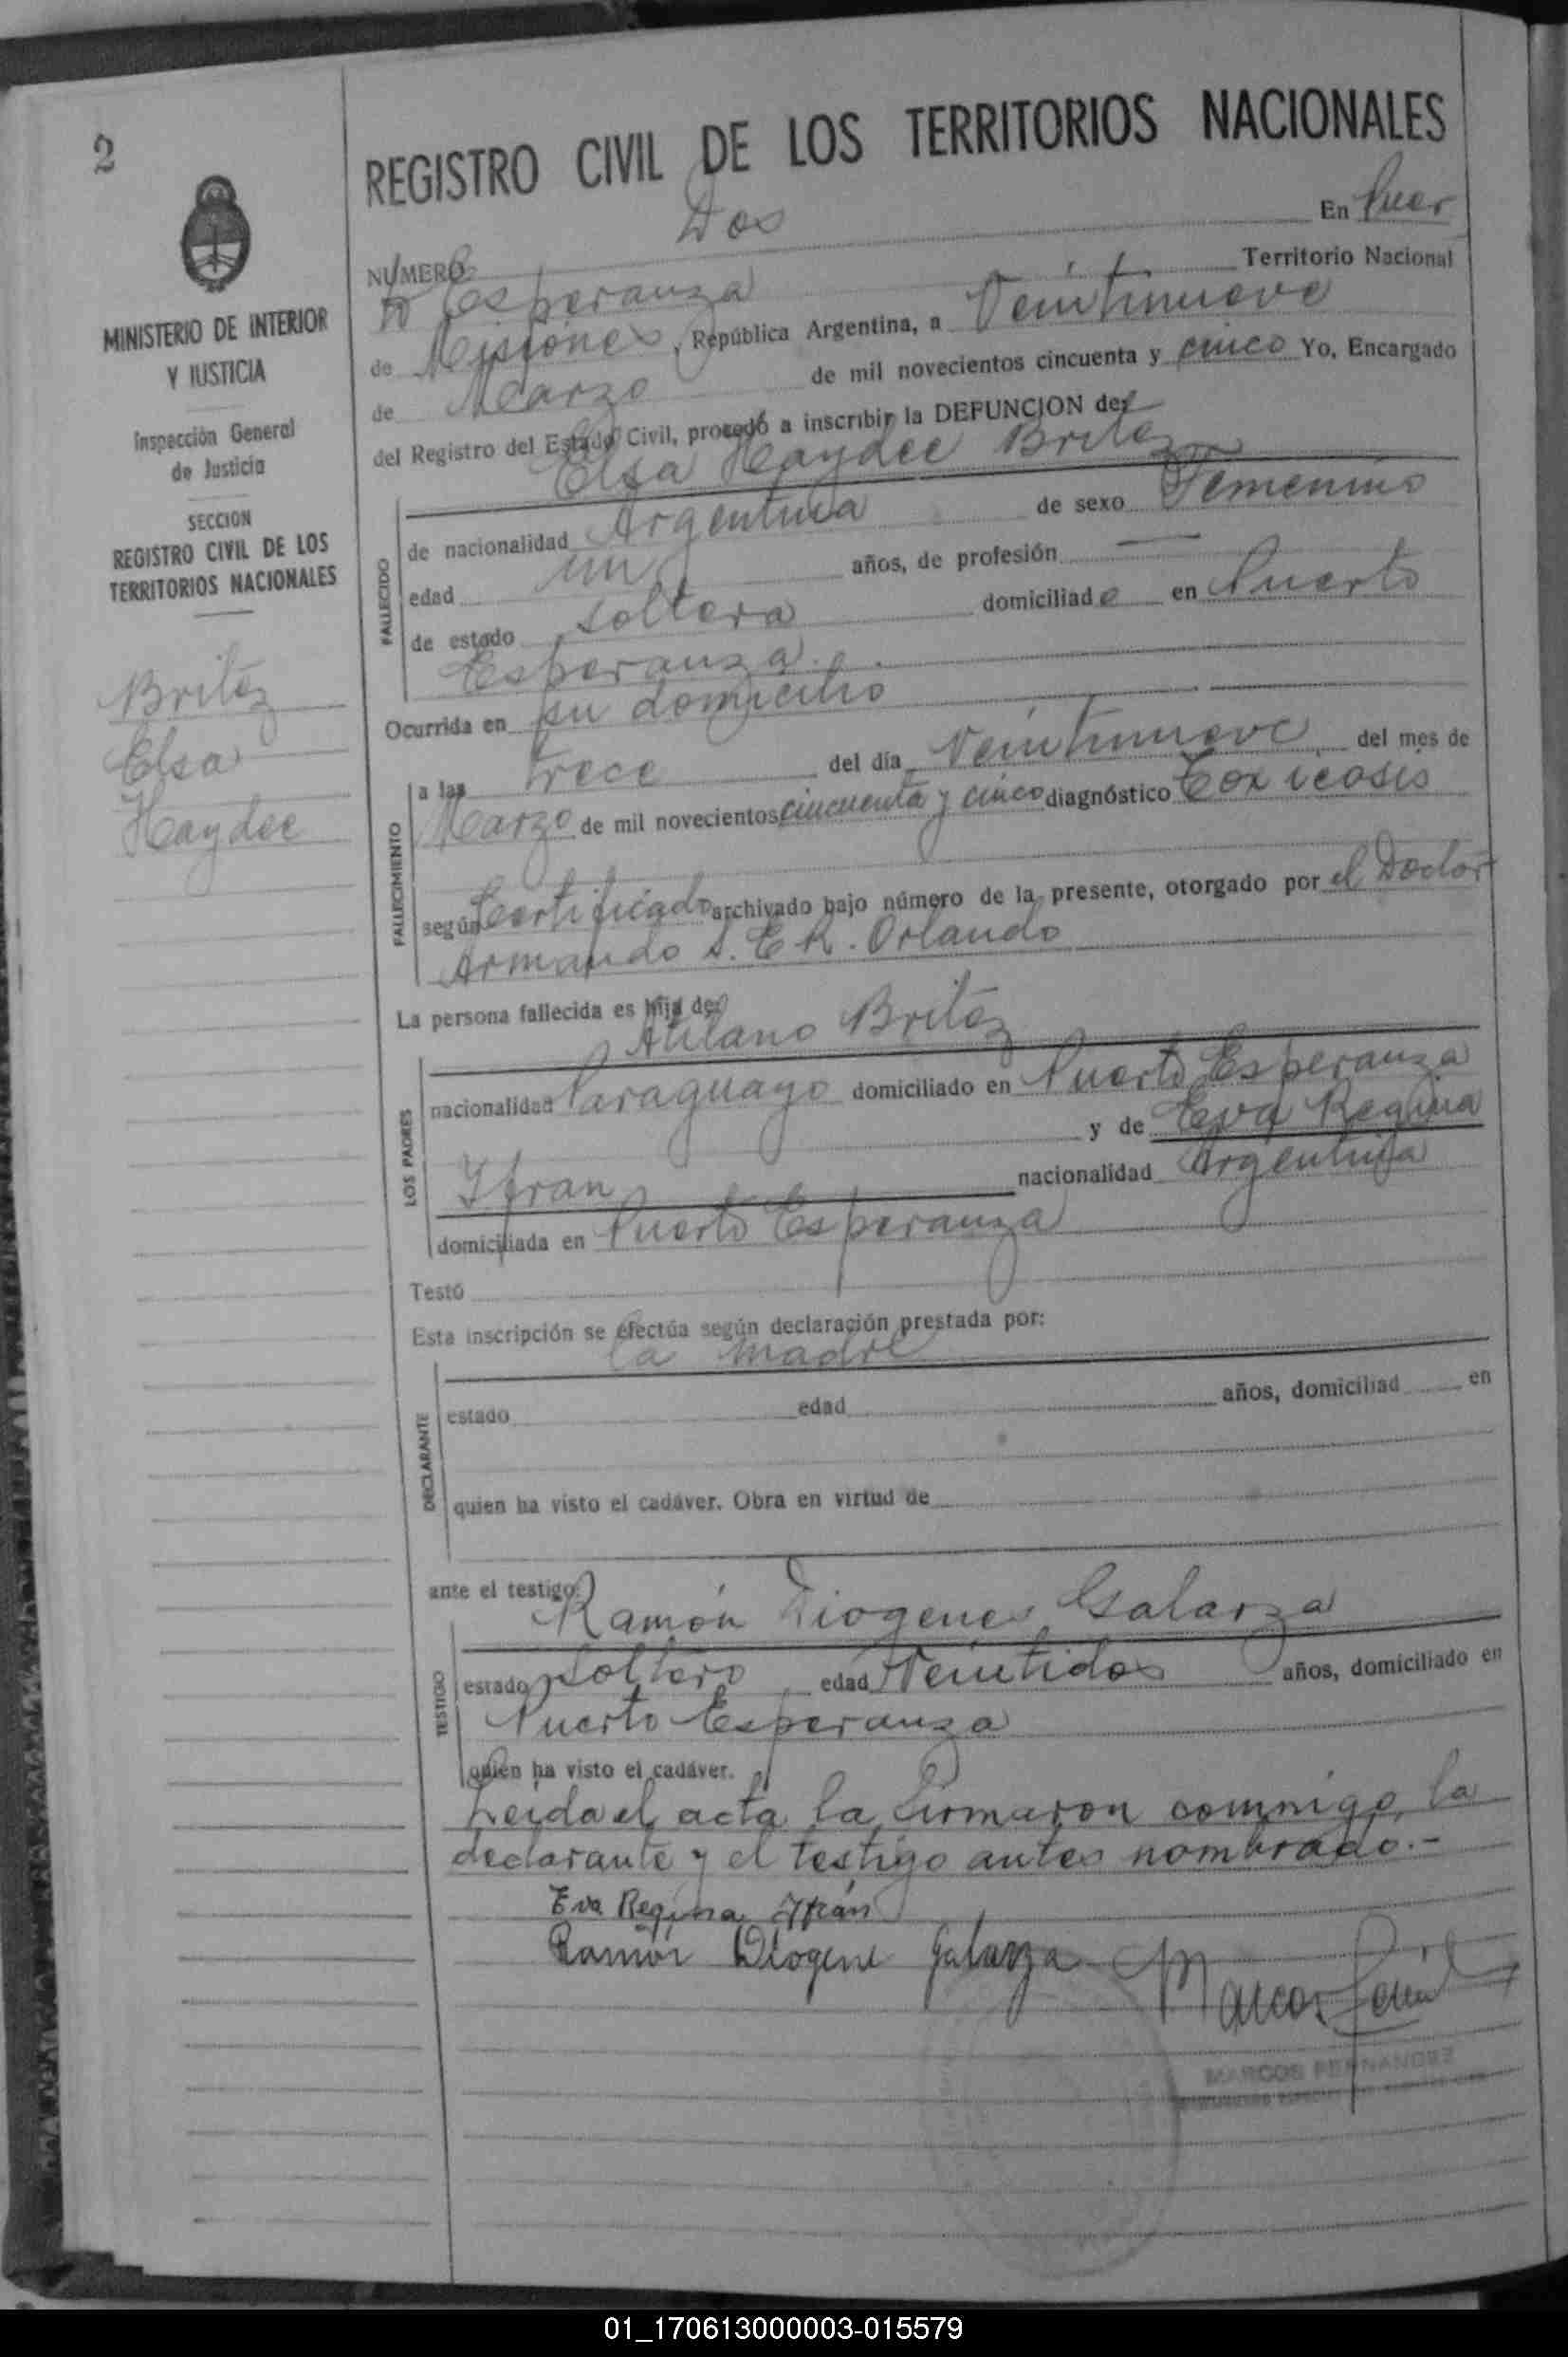 2
REGISTRO CIVIL DE LOS TERRITORIOS NACIONALES
NUMERO Dos En Puer
to Esperanza Territorio Nacional
de Misiones, República Argentina, a Veintinueve
de Marzo de mil novecientos cincuenta y cinco Yo, Encargado
del Registro del Estado Civil, procedó a inscribir la DEFUNCION de:
Elsa Haydee Britez
de nacionalidad Argentina de sexo Femenino
edad un años, de profesión —
de estado soltera domiciliada en Puerto
Esperanza.
Ocurrida en su domicilio
a las trece del día Veintinueve del mes de
Marzo de mil novecientos cincuenta y cinco diagnóstico Toxicosis
según Certificado archivado bajo número de la presente, otorgado por el Doctor
Armando S. E. R. Orlando
La persona fallecida es hija de:
Atilano Britez
nacionalidad Paraguayo domiciliado en Puerto Esperanza
y de Eva Regina
Ifran nacionalidad Argentina
domiciliada en Puerto Esperanza
Testó
Esta inscripción se efectúa según declaración prestada por:
la madre
estado edad años, domiciliad en
quien ha visto el cadáver. Obra en virtud de
ante el testigo:
Ramón Diogenes Galarza
estado soltero edad Veintidos años, domiciliado en
Puerto Esperanza
quien ha visto el cadáver.
Leida el acta la firmaron conmigo, la
declarante y el testigo antes nombrado.-
Eva Regina Ifrán
Ramón Diogene Galarza Marcos
MARCOS FERNANDEZ
MINISTERIO DE INTERIOR
Y JUSTICIA
Inspección General
de Justicia
SECCION
REGISTRO CIVIL DE LOS
TERRITORIOS NACIONALES
Britez
Elsa
Haydee
FALLECIDO
FALLECIMIENTO
LOS PADRES
DECLARANTE
TESTIGO
01_170613000003-015579